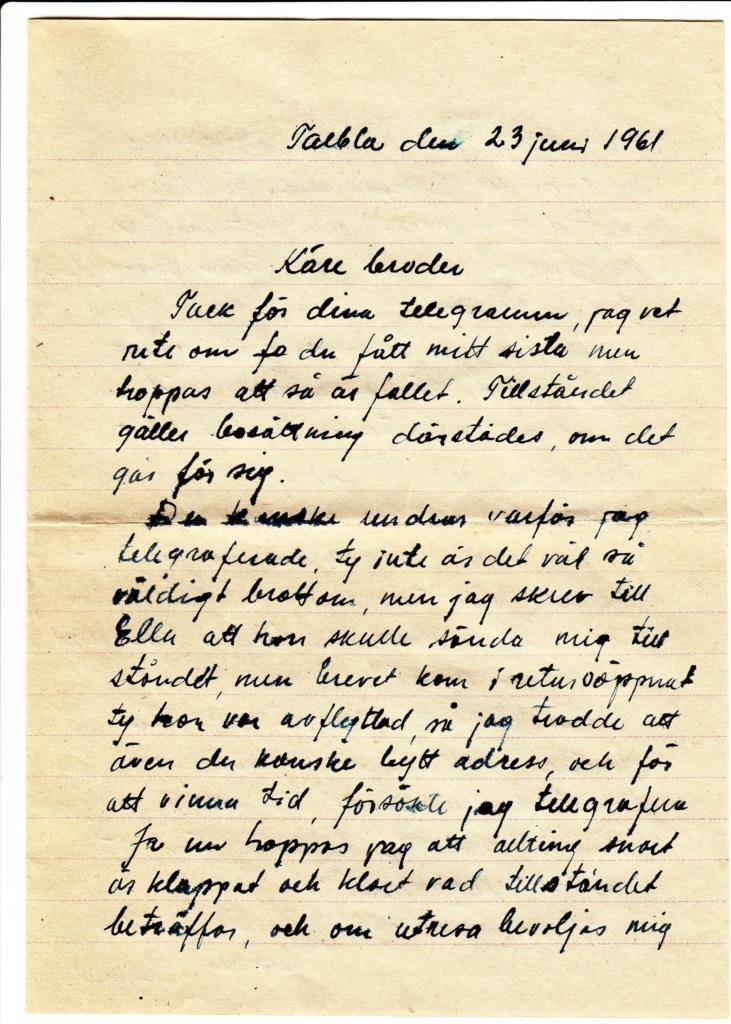 Taebla den 23 juni 1961
Käre broder
Tack för dina telegramm, jag vet
inte om fa du fått mitt sista men
hoppas att så är fallet. Tillståndet
gäller bosättning därstädes, om det
går för sig.
Du kanske undrar varför jag
telegraferade, ty inte är det väl så
väldigt brottom, men jag skrev till
Ella att hon skulle sända mig till
ståndet, men brevet kom i retur oöppnat
ty hon var avflyttad, så jag trodde att
även du kanske bytt adress, och för
att vinna tid, försökte jag telegrafera
Ja nu hoppas jag att allting snart
är klappat och klart vad tillståndet
beträffar, och om utresa beviljas mig